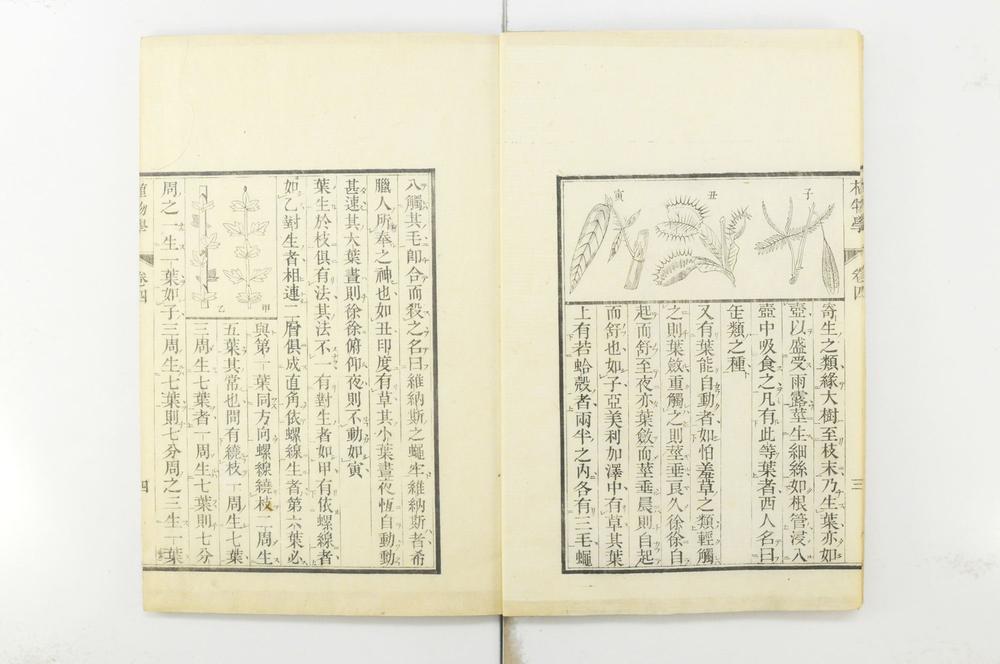 植物學 卷四 三
子
丑
寅
寄生之類緣大樹至枝末乃生葉亦如
壺以盛受雨露莖生細絲如根管浸入
壺中吸食之凡有此等葉者西人名曰
缶類之種
又有葉能自動者如怕羞草之類輕觸
之則葉斂重觸之則莖垂良久徐徐自
起而舒至夜亦葉斂而莖垂晨則自起
而舒也如子亞美利加澤中有草其葉
上有若蛤殼者兩半之內各有三毛蠅
入觸其毛卽合而殺之名曰維納斯之蠅牢維納斯者希
臘人所奉之神也如丑印度有草其小葉晝夜恆自動動
甚速其大葉晝則徐徐俯仰夜則不動如寅
葉生於枝俱有法其法不一有對生者如甲有依螺線者
如乙對生者相連二層俱成直角依螺線生者第六葉必
甲
乙
與第一葉同方向螺線繞枝二周生
五葉其常也間有繞枝一周生七葉
三周生七葉者一周生七葉則七分
周之一生一葉如子三周生七葉則七分周之三生一葉
植物學 卷四 四